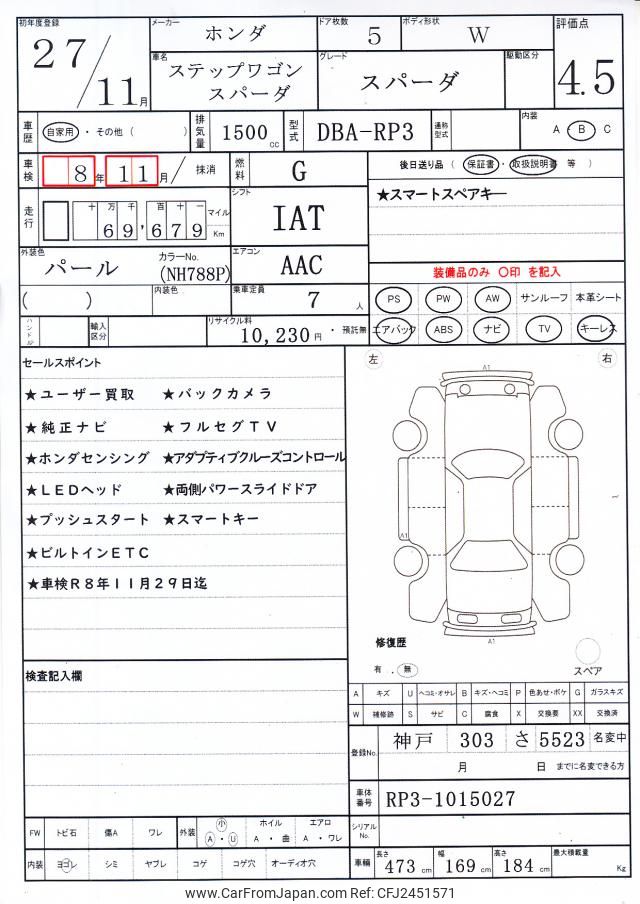 初年度登録
27/11月
メーカー
ホンダ
ドア枚数
5
ボディ形状
W
評価点
4.5
車名
ステップワゴン
スパーダ
グレード
スパーダ
駆動区分
車歴
自家用・その他( )
排気量
1500cc
型式
DBA-RP3
通称型式
内装
A・B C
車検
8年11月/
抹消
燃料
G
後日送り品( 保証書・取扱説明書 等 )
★スマートスペアキー
走行
十万千百十一
69,679
マイル
Km
シフト
IAT
外装色
パール
カラーNo.
(NH788P)
エアコン
AAC
装備品のみ 〇印 を記入
( )
内装色
乗車定員
7人
PS PW AW サンルーフ 本革シート
エアバック ABS ナビ TV キーレス
ハンドル
輸入区分
リサイクル料
10,230円・預託無
セールスポイント
★ユーザー買取 ★バックカメラ
★純正ナビ ★フルセグTV
★ホンダセンシング ★アダプティブクルーズコントロール
★LEDヘッド ★両側パワースライドドア
★プッシュスタート ★スマートキー
★ビルトインETC
★車検R8年11月29日迄
左
右
A1
A1
A1
修復歴
有・無
スペア
検査記入欄
A キズ U ヘコミ・オサレ B キズ・ヘコミ P 色あせ・ボケ G ガラスキズ
W 補修跡 S サビ C 腐食 X 交換要 XX 交換済
登録No.
神戸 303 さ 5523 名変中
月 日 までに名変できる方
車体番号
RP3-1015027
シリアルNo.
FW トビ石 傷A ワレ 外装 小 A・U ホイル A・曲 エアロ A・ワレ
内装 ヨゴレ シミ ヤブレ コゲ コゲ穴 オーディオ穴
車輌
長さ 473cm
幅 169cm
高さ 184cm
最大積載量
Kg
www.CarFromJapan.com Ref: CFJ2451571